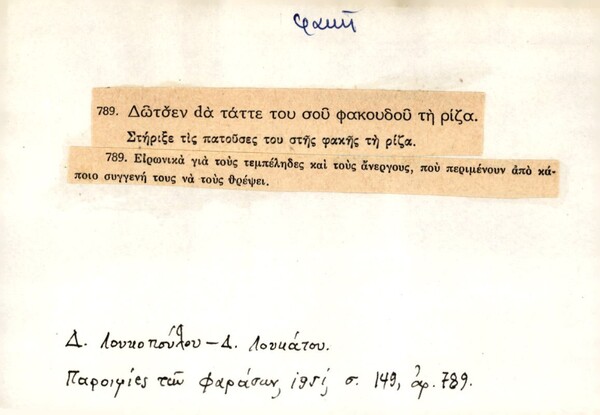 φακῆ
789. Δῶτσ̌εν dὰ τάττε του σοῦ φακουδοῦ τὴ ρίζα.
Στήριξε τὶς πατοῦσες του στῆς φακῆς τὴ ρίζα.
789. Εἰρωνικὰ γιὰ τοὺς τεμπέληδες καὶ τοὺς ἄνεργους, ποὺ περιμένουν ἀπὸ κά-
ποιο συγγενή τους νὰ τοὺς θρέψει.
Δ. Λουκοπούλου – Δ. Λουκάτου.
Παροιμίες τῶν Φαράσων, 1951, σ. 149, ἀρ. 789.